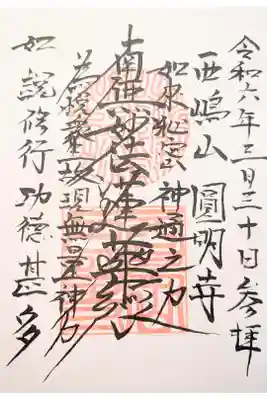 令和六年三月三十日参拝
西嶋山 圓明寺
如来秘密 神通之力
南無妙法蓮華経
為悦衆生故現無量神力
如説修行功徳甚多